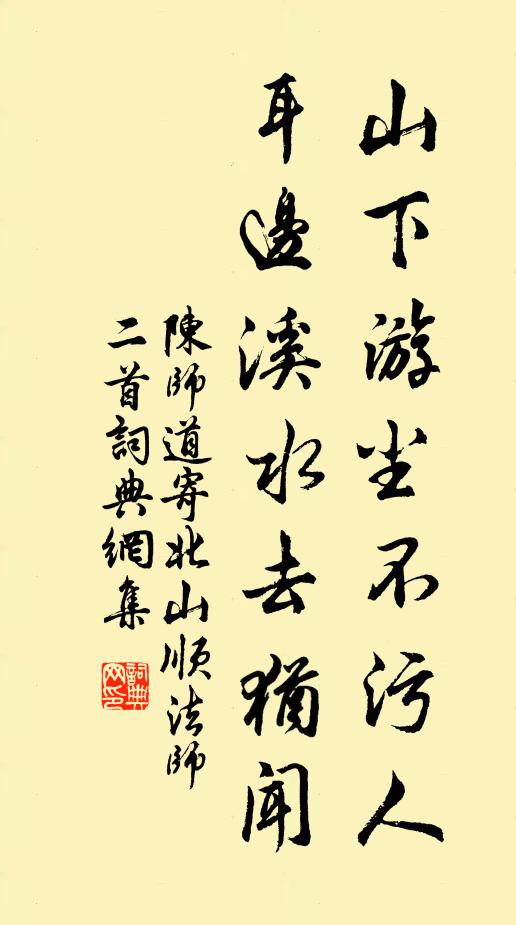 山下游尘不污人
耳邊溪水去猶聞
陳師道寄北山順法師
二首詞典網集
詞典網印